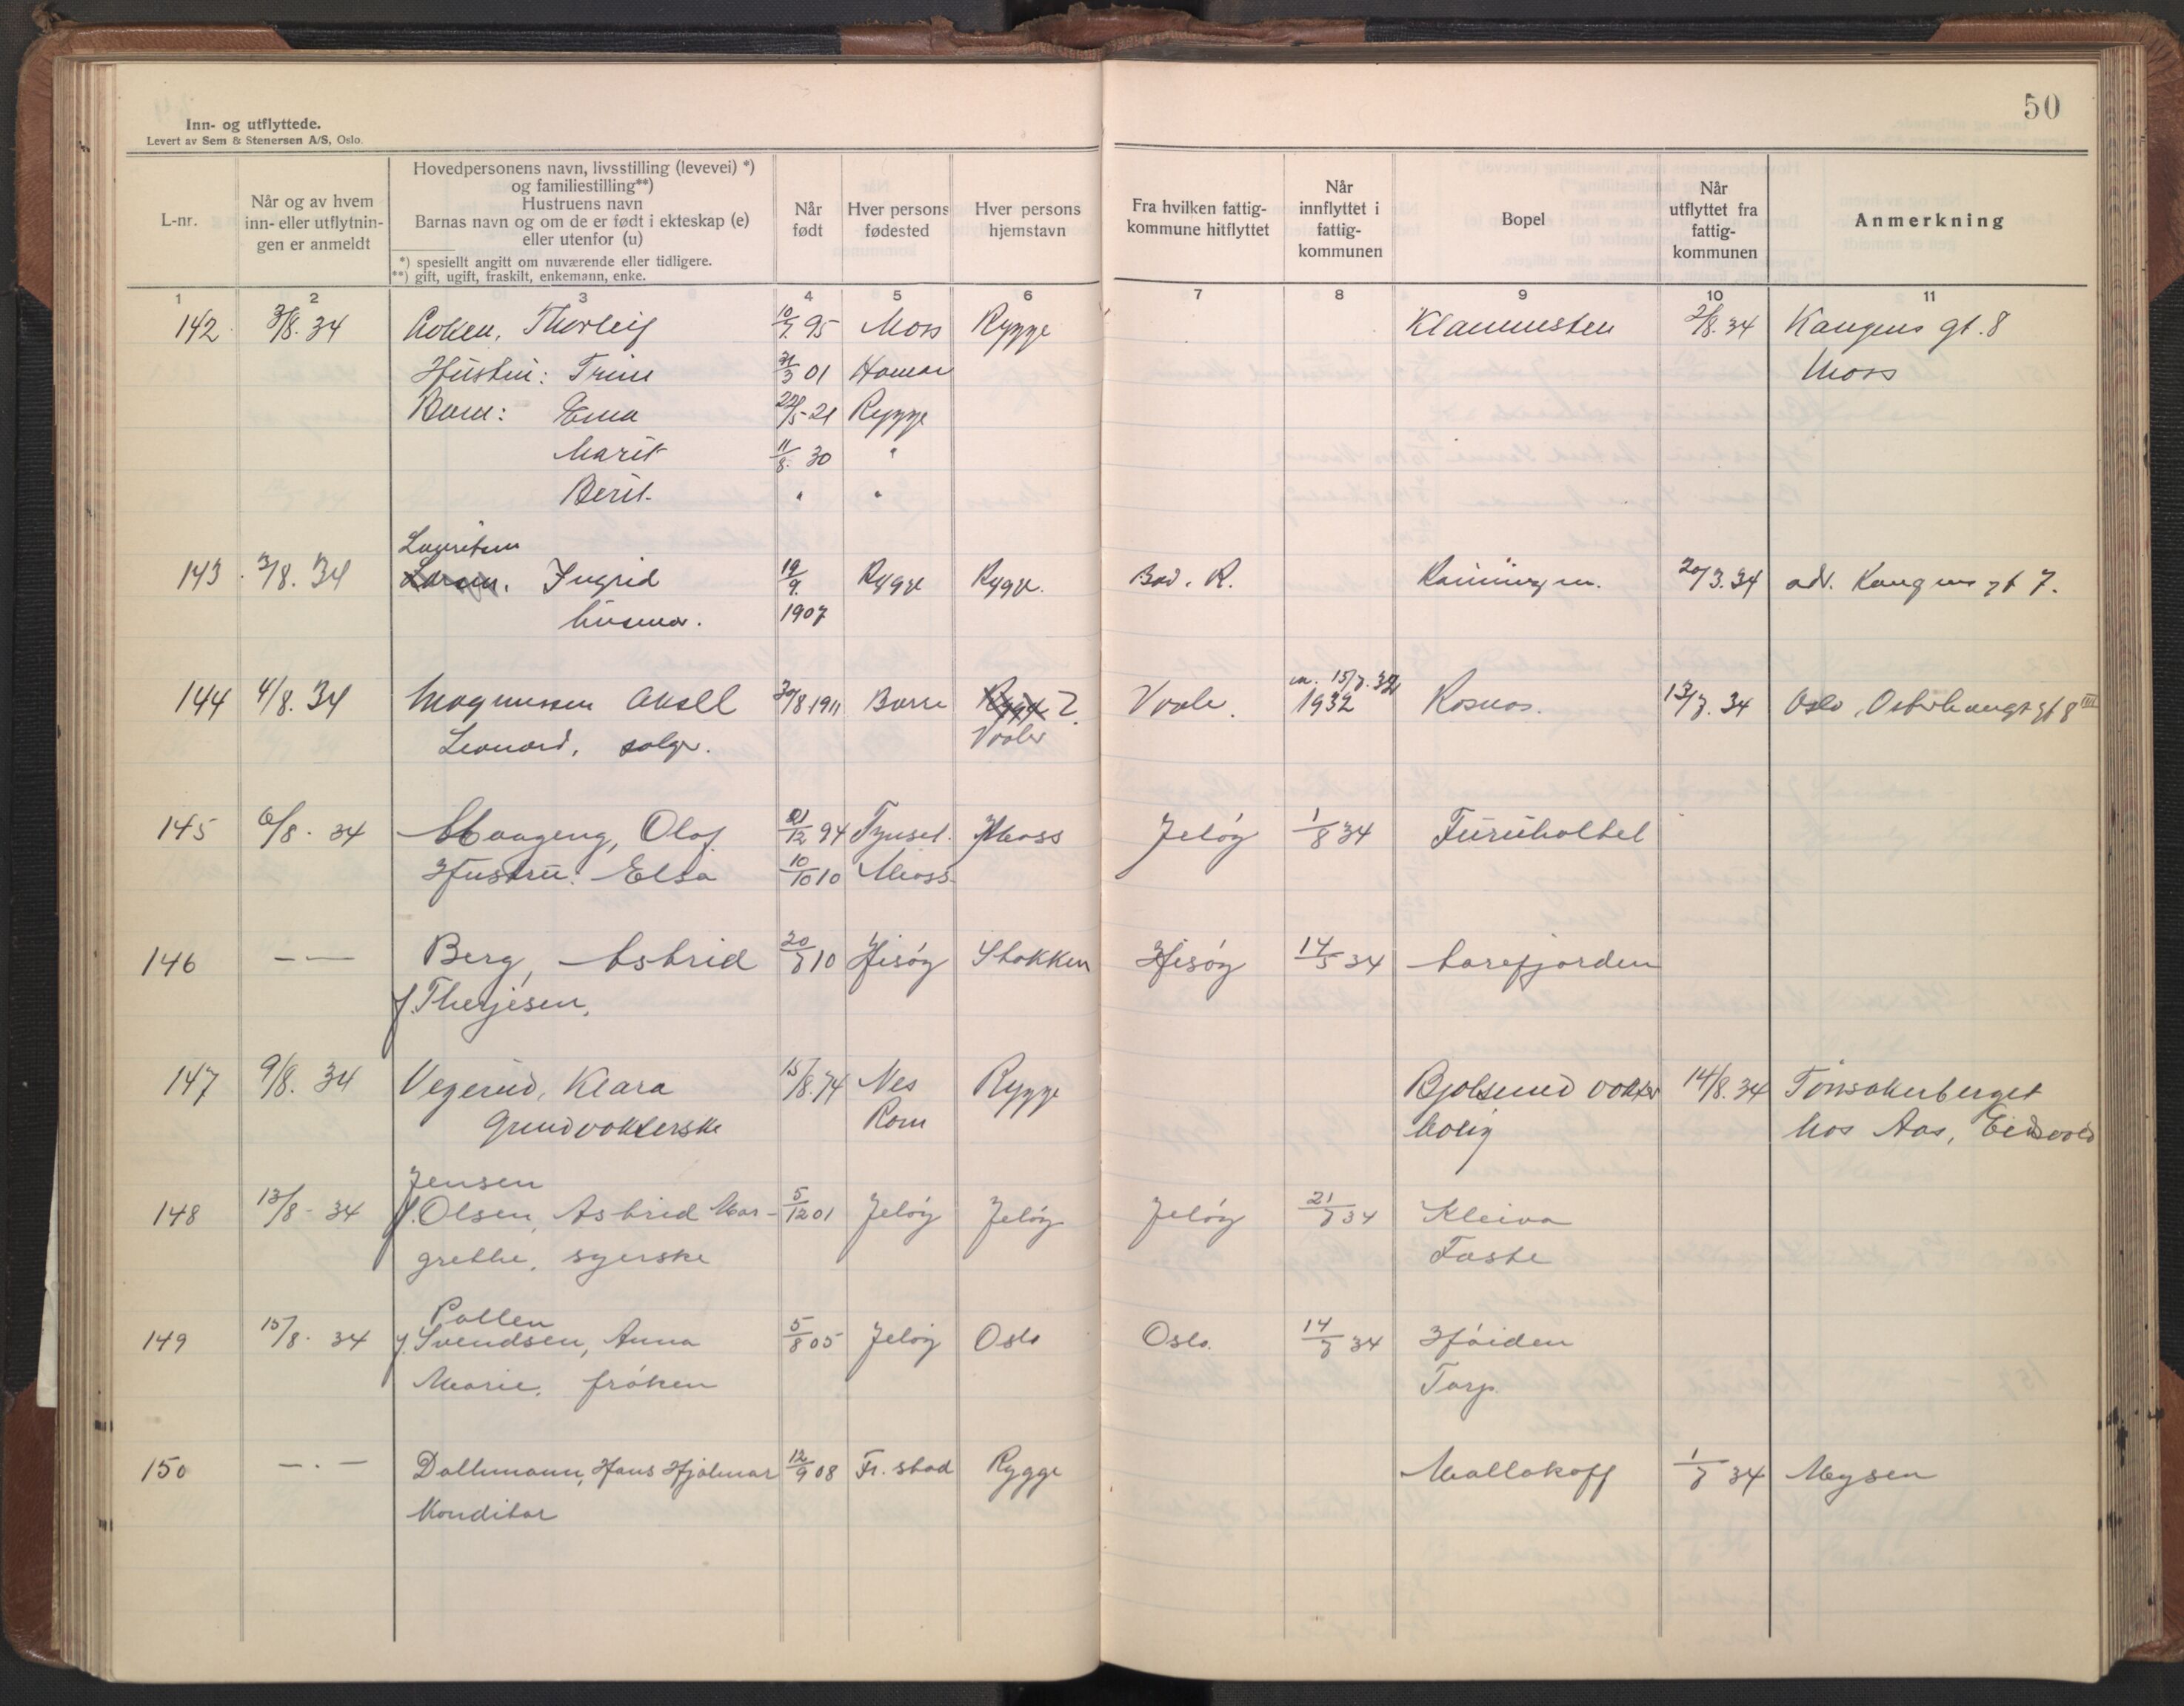 50
Inn- og utflyttede.
Levert av Sem & Stenersen A/S, Oslo.
L-nr.
Når og av hvem
inn- eller utflytnin-
gen er anmeldt
Hovedpersonens navn, livsstilling (levevei) *)
og familiestilling**)
Hustruens navn
Barnas navn og om de er født i ekteskap (e)
eller utenfor (u)
*) spesiellt angitt om nuværende eller tidligere.
**) gift, ugift, fraskilt, enkemann, enke.
Når
født
Hver persons
fødested
Hver persons
hjemstavn
Fra hvilken fattig-
kommune hitflyttet
Når
innflyttet i
fattig-
kommunen
Bopel
Når
utflyttet fra
fattig-
kommunen
Anmerkning
1 2 3 4 5 6 7 8 9 10 11
142 3/8. 34 Thorleif 10/7. 95 Moss Rygge 2/8. 34 Kongens gt. 8
Hustru: 31/3 01 Hamar Moss
Barn: 22/5-21 Rygge
Marit 11/8. 30 "
Berit. " "
Lauritsen
143 3/8. 34 Larsen, Ingrid 19/9. Rygge Rygge. 20/3. 34 Kongens gt 7.
husmor. 1907
15/7. 32
144 4/8. 34 Magnussen Aksel 30/8 1911 Borre Rygge ? Vaale. 1932 Rosnes. 13/7. 34 Oslo, Osterhausgt gt 8 III
Leonard, selger. Vaaler
145 6/8. 34 Haageng, Olaf 21/12 94 Tynset. Moss Jeløy 1/8 34 Furuholtet
Hustru: Elsa 10/10 10 Moss
146 — — Berg, Astrid 20/7 10 Hisøy Stokken Hisøy 14/5 34 Larefjorden
f. Therjesen,
147 9/8. 34 Vegerud, Klara 15/8. 74 Nes Rygge vokter 14/8. 34 Tønsakerberget
Grindvokterske Rom bolig hos Aas, Eidsvold
Jensen
148 13/8- 34 f. Olsen, Astrid Mar- 5/12 01 Jeløy Jeløy Jeløy 21/7 34 Kleiva
grethe, syerske Faste
Pollen
149 15/8. 34 f. Svendsen, Anna 5/8 05 Jeløy Oslo Oslo. 14/7 34 Høiden
Marie, frøken Torp.
150 — . — Dallmann, Hans Hjalmar 12/9 08 Fr. stad Rygge Mallakoff 1/7 34 Mysen
Konditor